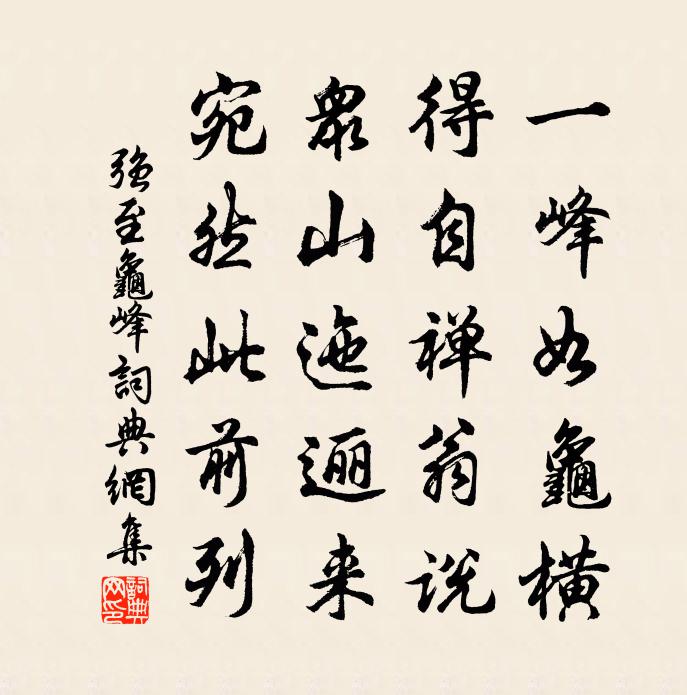 一峰如龜橫
得自禅翁说
衆山迤逦来
宛然此前列
强至龜峰詞典網集
詞典網印